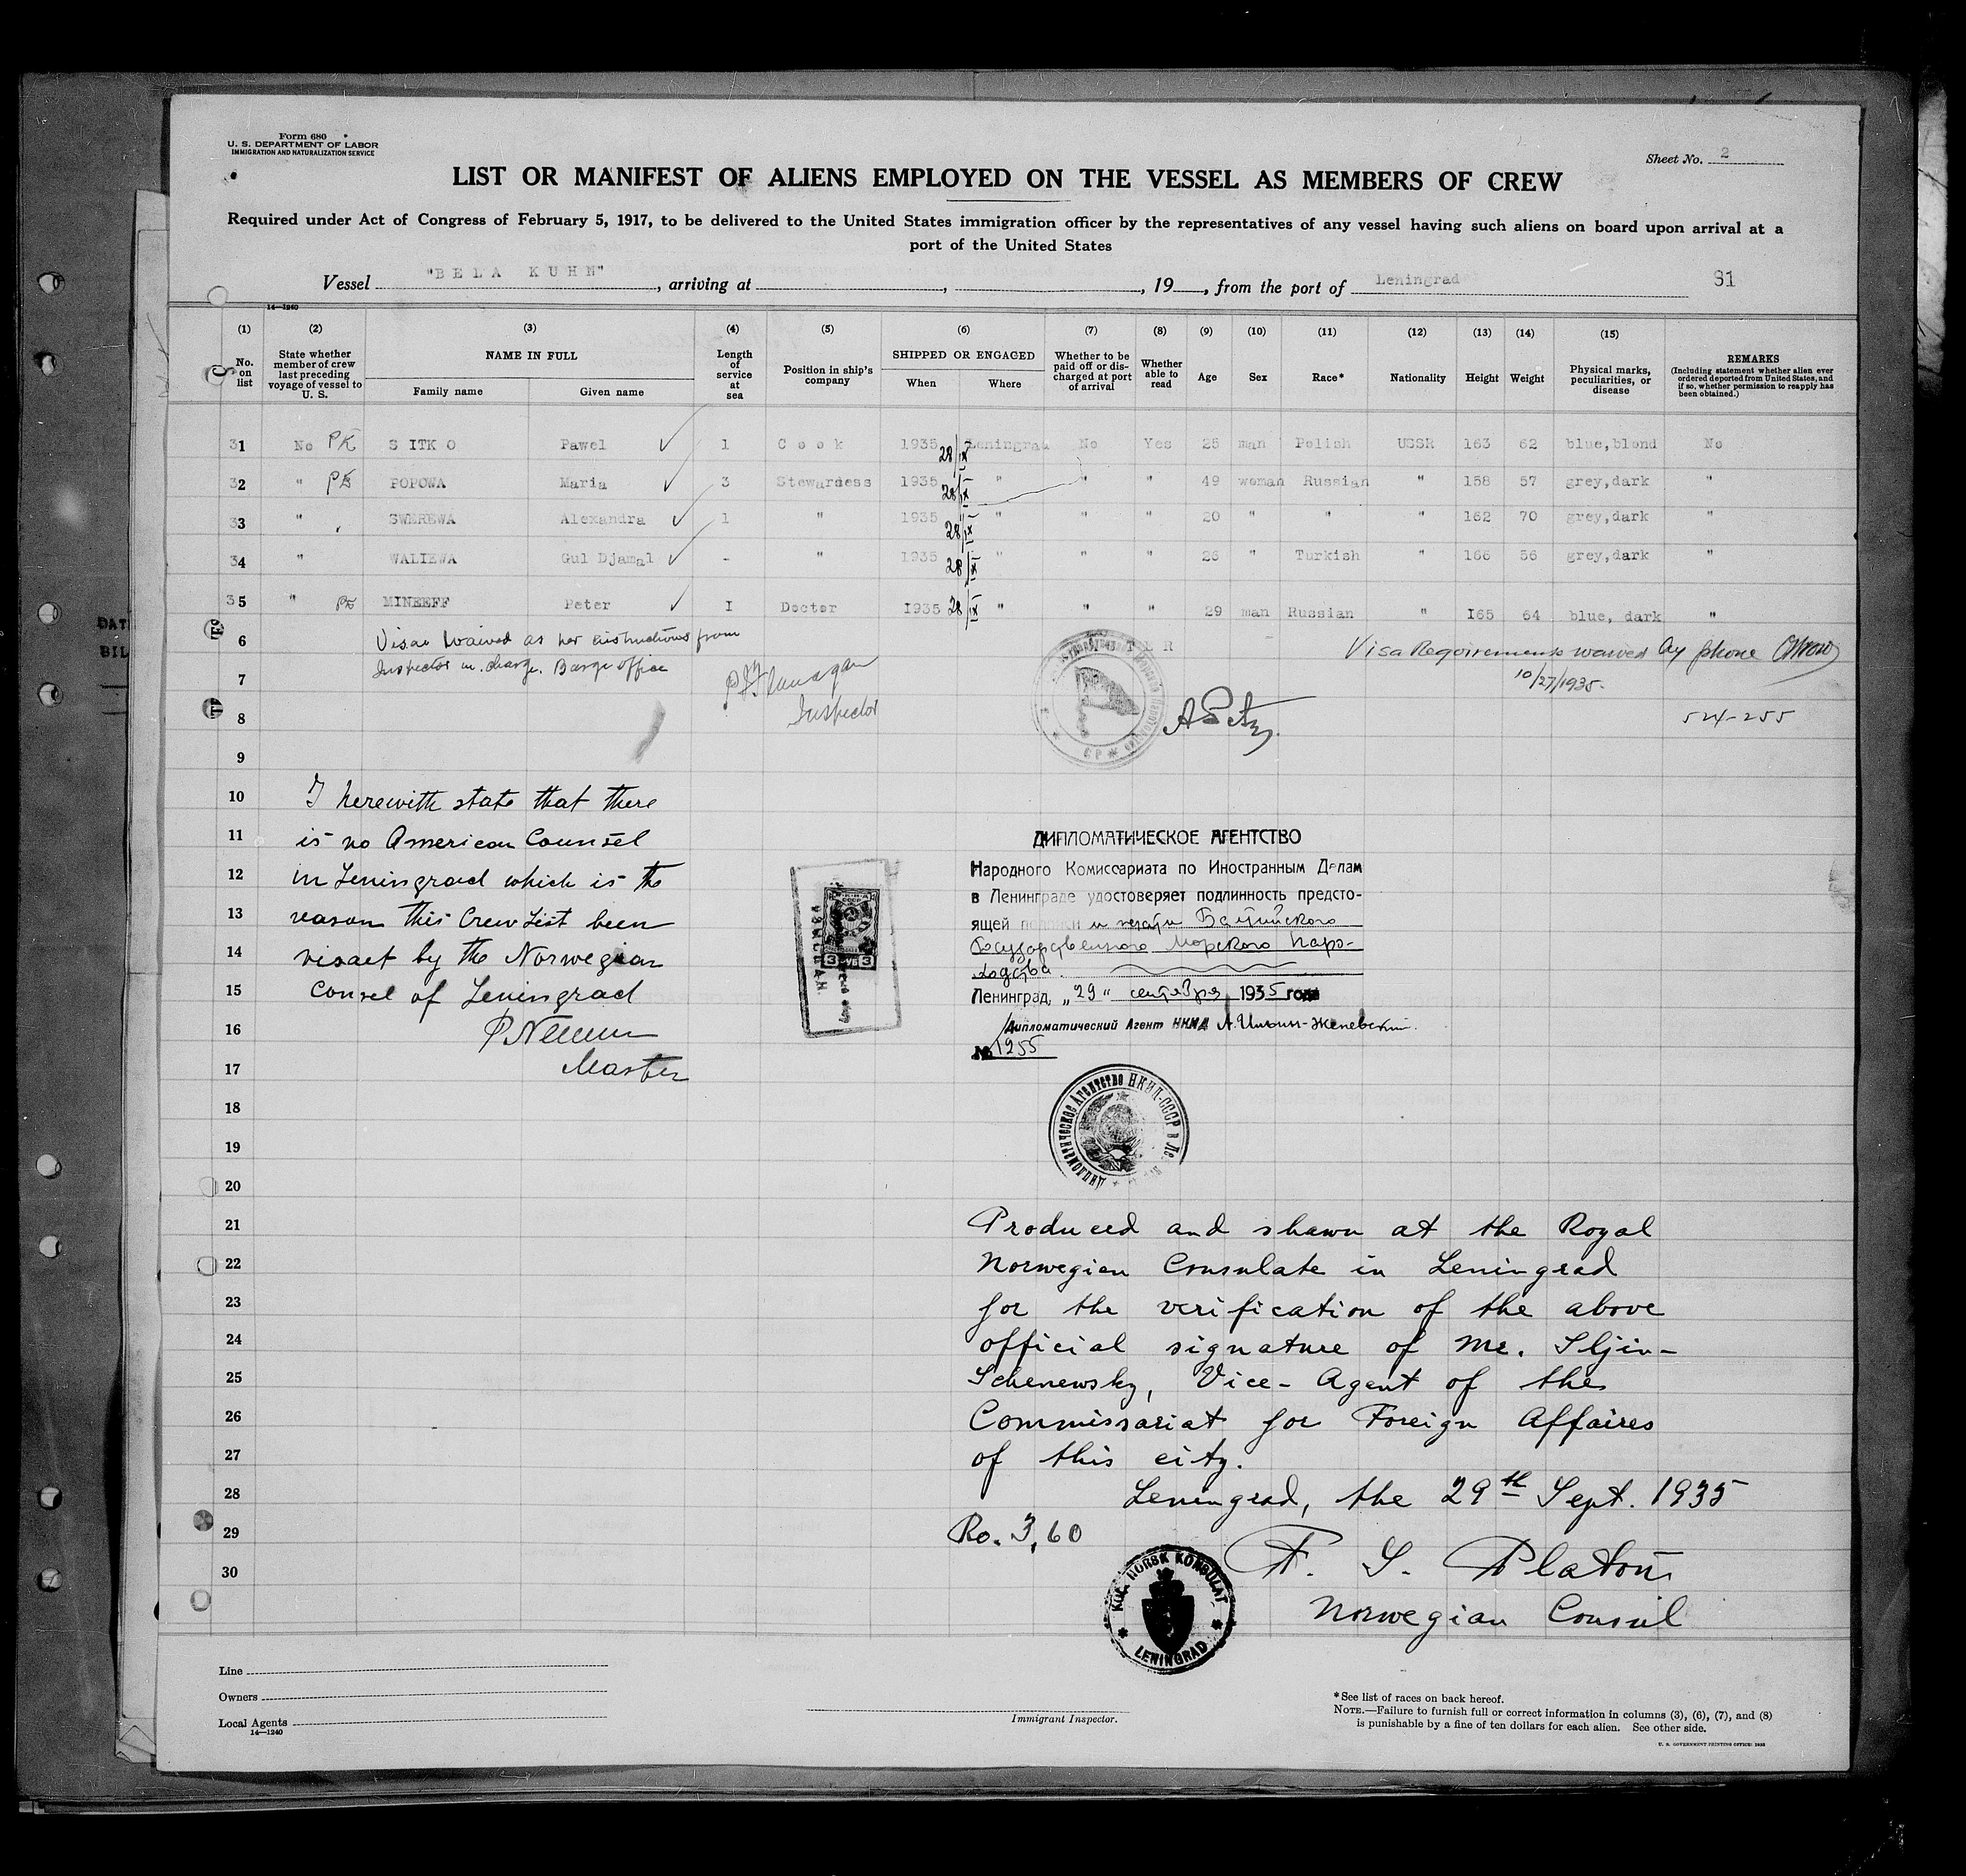 Form 680
U. S. DEPARTMENT OF LABOR
IMMIGRATION AND NATURALIZATION SERVICE
Sheet No. 2
LIST OR MANIFEST OF ALIENS EMPLOYED ON THE VESSEL AS MEMBERS OF CREW
Required under Act of Congress of February 5, 1917, to be delivered to the United States immigration officer by the representatives of any vessel having such aliens on board upon arrival at a
port of the United States
Vessel "BELA KUHN", arriving at , , 19 , from the port of Leningrad 81
14—1240
(1) (2) (3) (4) (5) (6) (7) (8) (9) (10) (11) (12) (13) (14) (15)
No. on list State whether member of crew last preceding voyage of vessel to U. S. NAME IN FULL Family name Given name Length of service at sea Position in ship's company SHIPPED OR ENGAGED When Where Whether to be paid off or discharged at port of arrival Whether able to read Age Sex Race* Nationality Height Weight Physical marks, peculiarities, or disease REMARKS (Including statement whether alien ever ordered deported from United States, and if so, whether permission to reapply has been obtained.)
31 No PK SITKO Pawel ✓ 1 Cook 1935 28/IX Leningrad No Yes 25 man Polish USSR 163 62 blue,blond No
32 " PK POPOWA Maria ✓ 3 Stewardess 1935 28/IX " " " 49 woman Russian " 158 57 grey,dark "
33 " SWEREWA Alexandra ✓ 1 " 1935 28/IX " " " 20 " " " 162 70 grey,dark "
34 " WALIEWA Gul Djamal ✓ - " 1935 28/IX " " " 26 " Turkish " 166 56 grey,dark "
35 " PK MINEEFF Peter ✓ I Doctor I935 28/IX " " " 29 man Russian " I65 64 blue, dark "
6 Visas waived as per instructions from
Inspector in charge. Barge office
7 P Flanagan
Inspector
Visa Requirements waived by phone
10/27/1935.
8 524-255
9
10 I herewith state that there
11 is no American Counsel
12 in Leningrad which is the
13 reason this Crew List been
14 visaet by the Norwegian
15 Consel of Leningrad
16
17 Master
18
19
20
21
22
23
24
25
26
27
28
29
30
ДИПЛОМАТИЧЕСКОЕ АГЕНТСТВО
Народного Комиссариата по Иностранным Делам
в Ленинграде удостоверяет подлинность предсто-
ящей подписи и печати Балтийского
Государственного Морского Паро-
ходства
Ленинград, „29" сентября 1935 года
Дипломатический Агент НКИД А. Ильин-Женевский.
№ 1255
ДИПЛОМАТИЧЕСКОЕ АГЕНТСТВО НКИД-СССР
Produced and shawn at the Royal
Norwegian Consulate in Leningrad
for the verification of the above
official signature of Mr. Iljin-
Schenewsky, Vice-Agent of the
Commissariat for Foreign Affaires
of this city.
Leningrad, the 29th Sept. 1935
Ro. 3,60
F. S. Platou
Norwegian Consul
KGL. NORSK KONSULAT
LENINGRAD
Line
Owners
Local Agents
14—1240
Immigrant Inspector.
*See list of races on back hereof.
NOTE.—Failure to furnish full or correct information in columns (3), (6), (7), and (8)
is punishable by a fine of ten dollars for each alien. See other side.
U. S. GOVERNMENT PRINTING OFFICE: